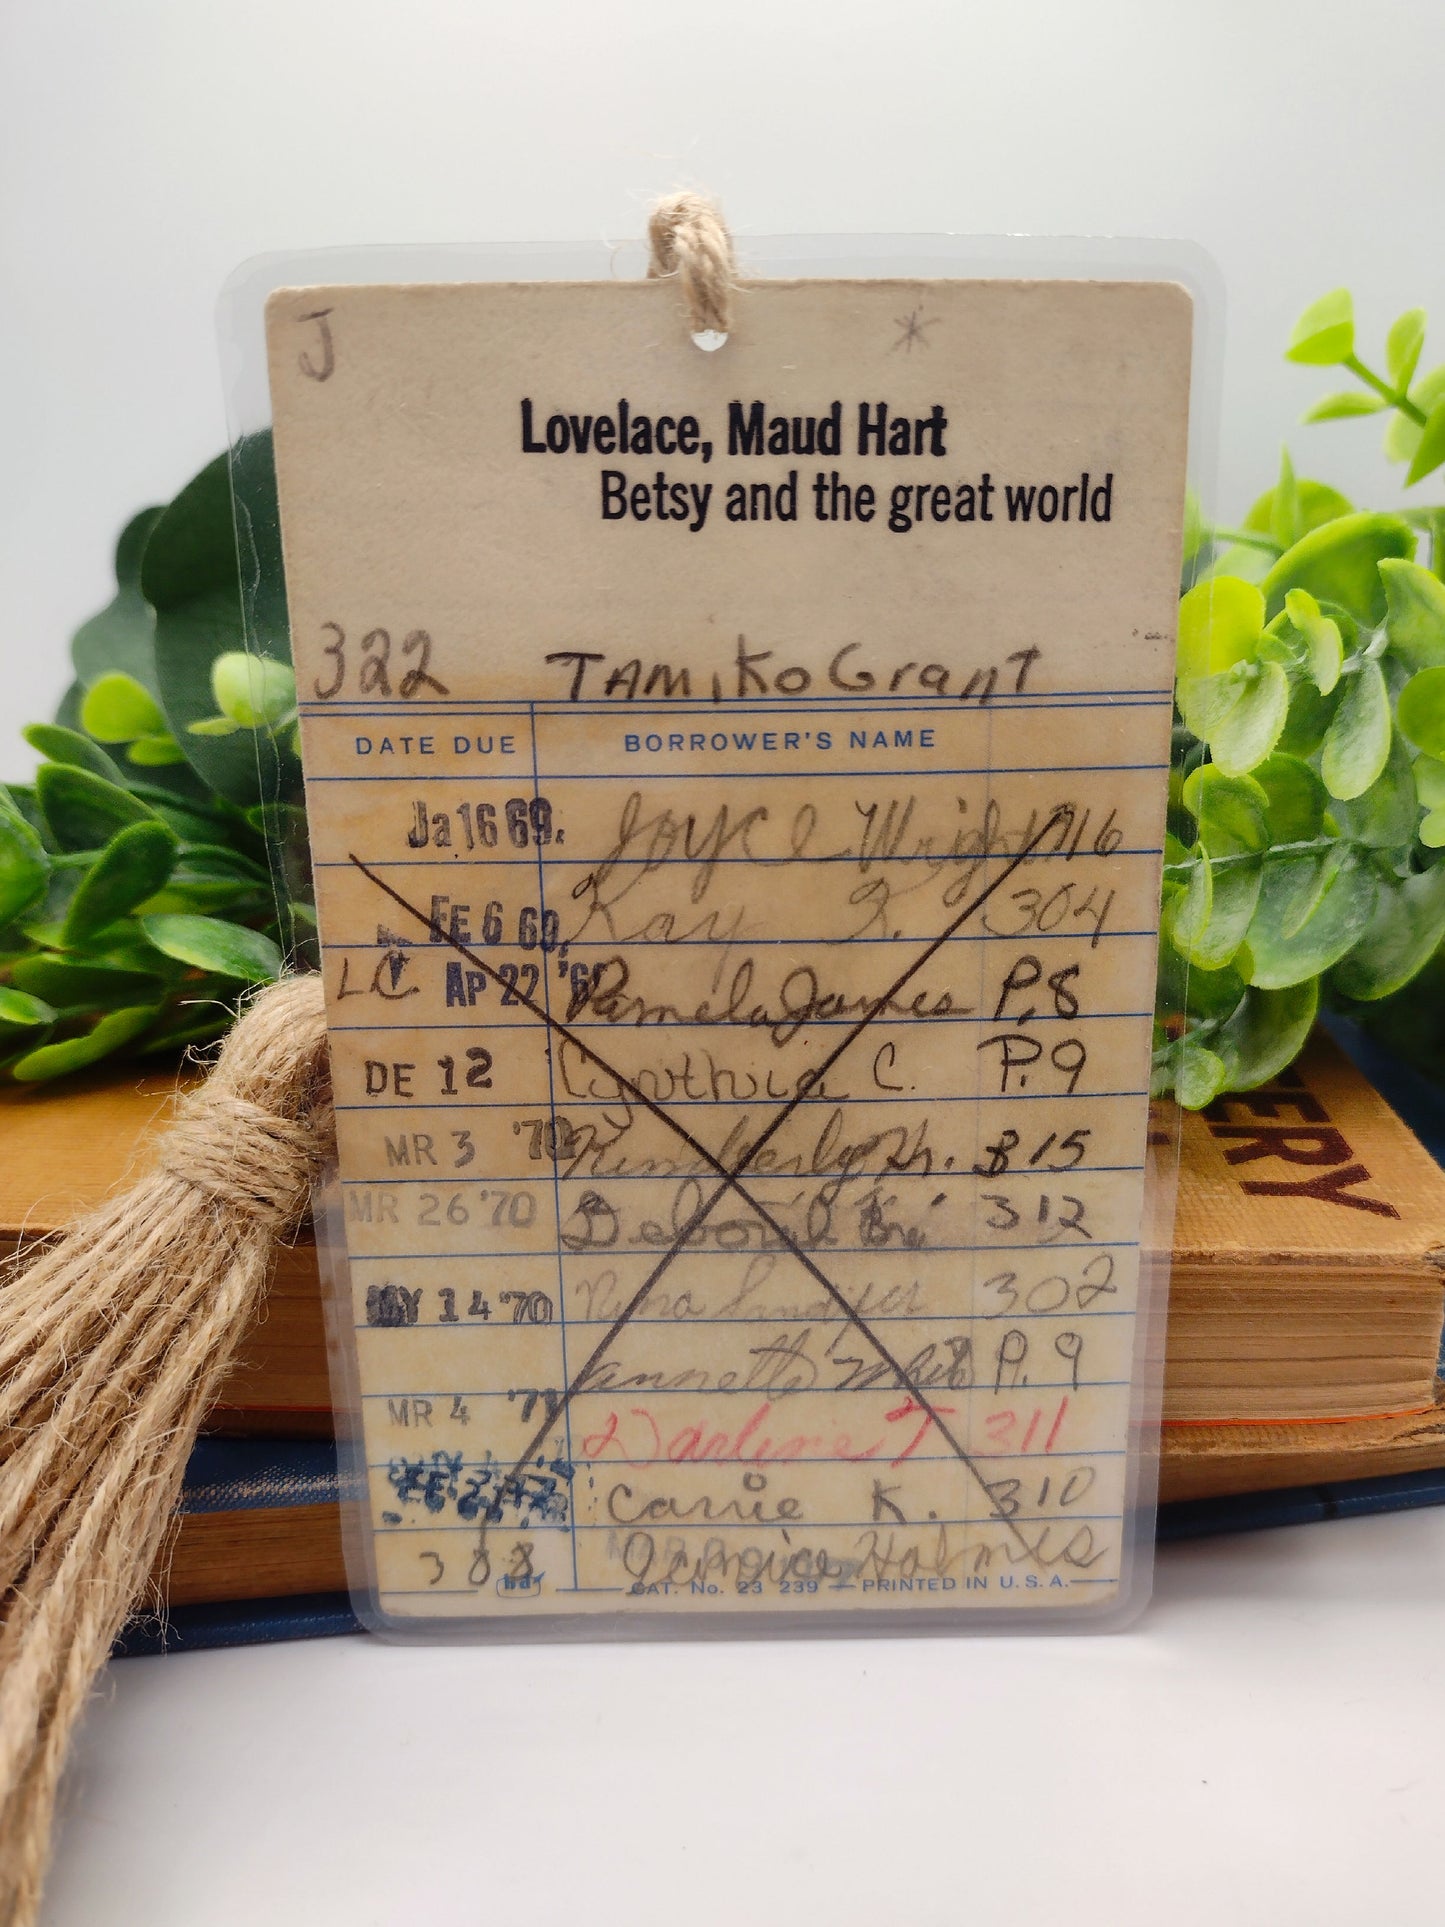 J *
Lovelace, Maud Hart
Betsy and the great world
322 TAMiKo GranT
DATE DUE BORROWER'S NAME
Ja 16 69. Joyce Wright 116
FE 6 69, Kay 304
L.C. Ap 22 '69 Pamela James P.8
DE 12 Cynthia C. P.9
MR 3 '70 Kimberly H. 315
MR 26 '70 Deborah 312
MY 14 '70 302
Annette P.9
MR 4 '71 Darline T 311
Carrie K. 310
308 Holmes
CAT. No. 23 239 — PRINTED IN U.S.A.
ERY